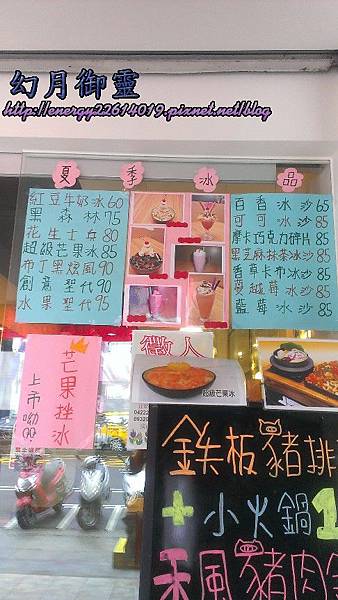 幻月御靈
http://energy22614019.pixnet.net/blog
夏季冰品
紅豆牛奶冰60
黑森林75
花生士兵80
超級芒果冰85
布丁黑炫風90
創意聖代90
水果聖代95
百香冰沙65
可可冰沙85
摩卡巧克力碎片85
黑芝麻抹茶冰沙85
香草卡布冰沙85
蔓越莓冰沙85
藍莓冰沙85
芒果挫冰
上市呦QQ
徵人
超級芒果冰
鉄板豬排
+小火鍋1
禾風豬肉